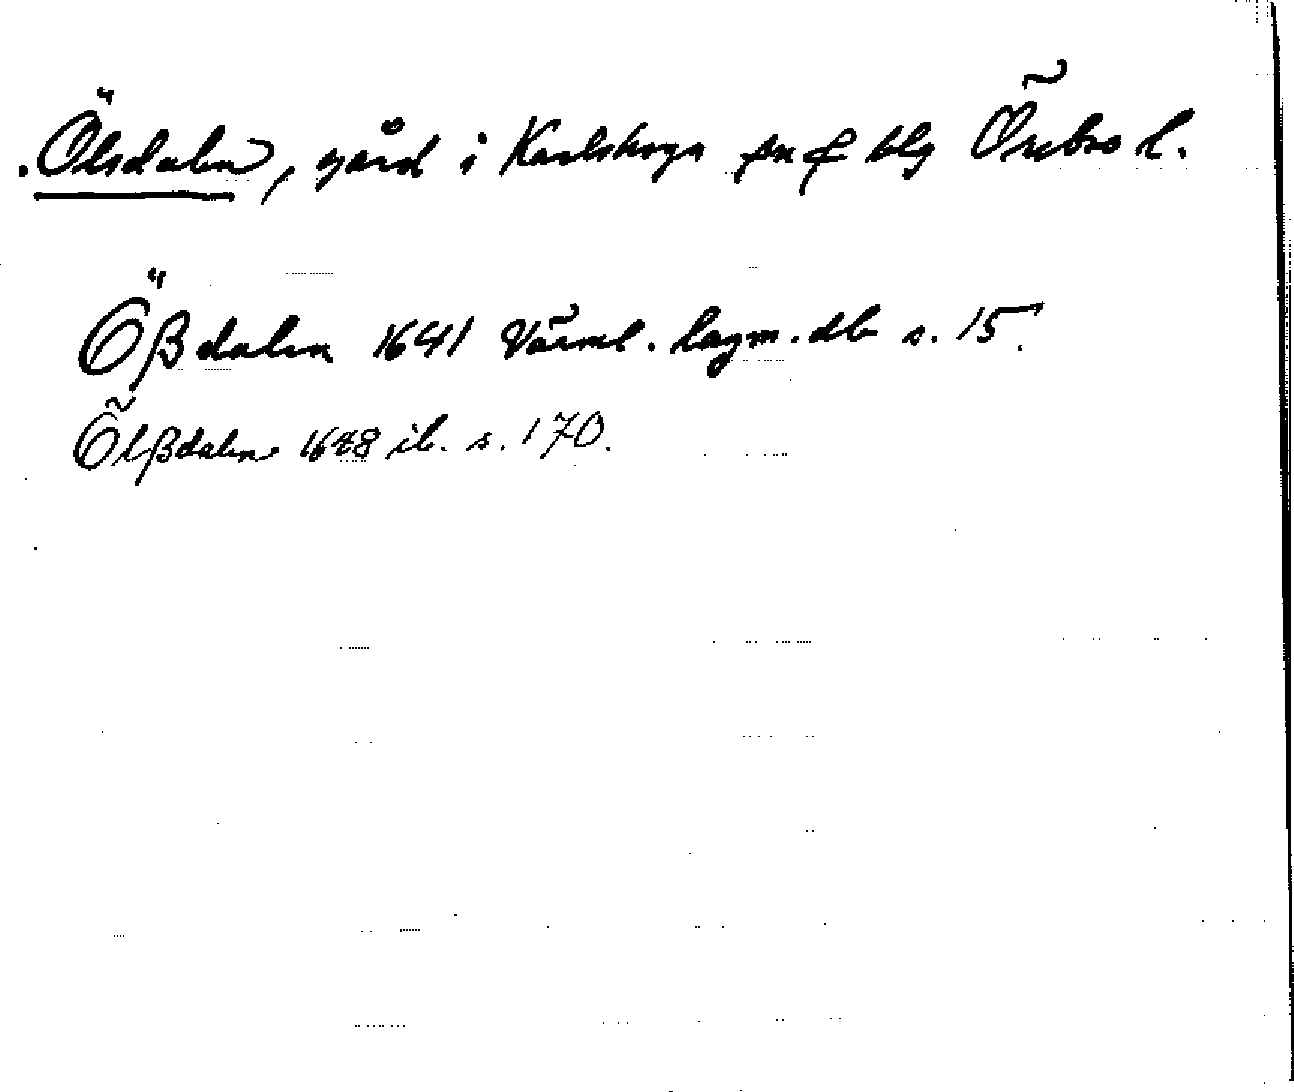 Ölsdalen, gård i Karlskoga sn o blg Örebro l.
Ößdalen 1641 Värml. lagm. db s. 15.
Ölßdalen 1648 ib. s. 170.